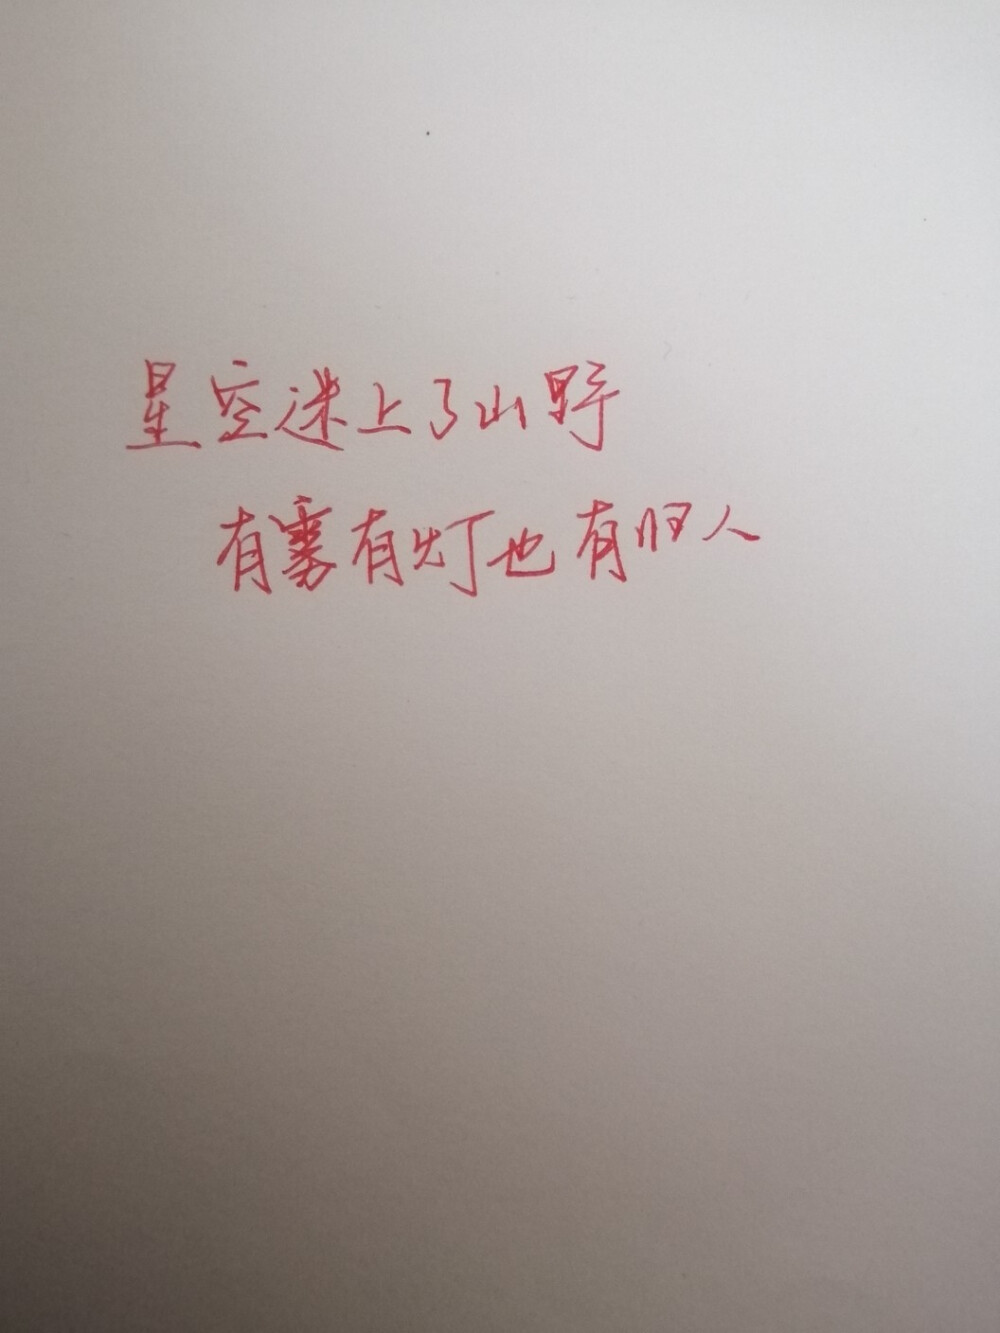 星空迷上了山野
有雾有灯也有归人